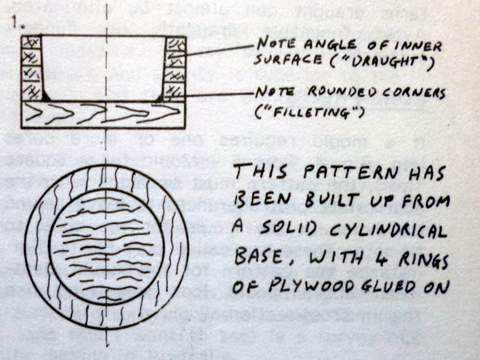 1.
NOTE ANGLE OF INNER
SURFACE ("DRAUGHT")
NOTE ROUNDED CORNERS
("FILLETING")
THIS PATTERN HAS
BEEN BUILT UP FROM
A SOLID CYLINDRICAL
BASE, WITH 4 RINGS
OF PLYWOOD GLUED ON